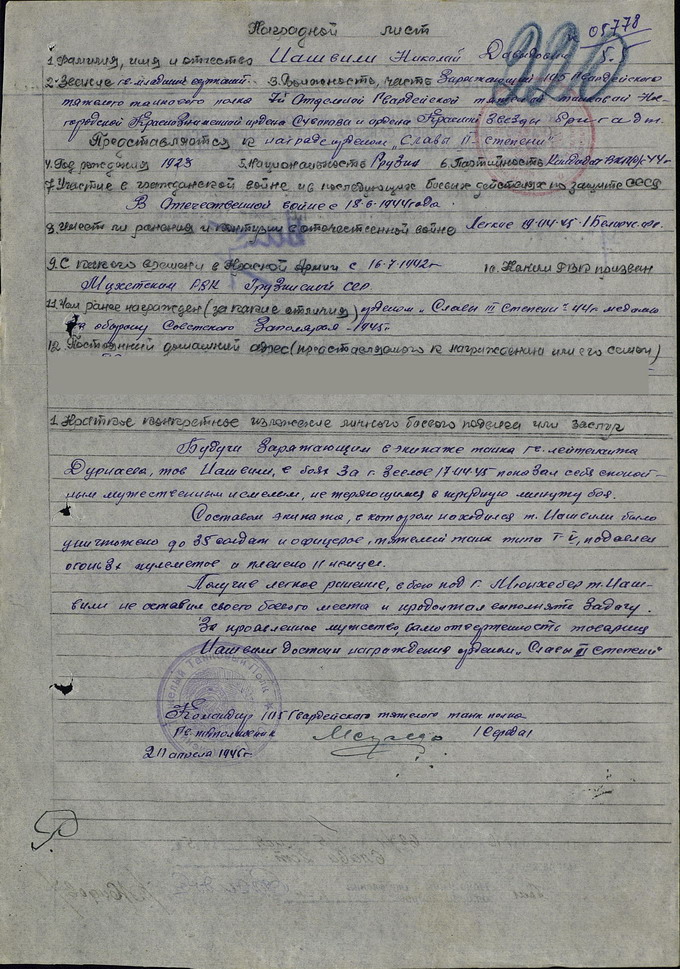 Наградной лист
05778
1. Фамилия, имя и отчество Иашвили Николай Давидович
2. Звание гв. младший сержант 3. Должность, часть Заряжающий 105 Гвардейского
тяжелого танкового полка 7й Отдельной Гвардейской тяжелой танковой Нов-
городской Краснознаменной ордена Суворова и ордена Красной Звезды бригады.
Представляется к награждению орденом „Славы II-степени"
4. Год рождения 1923 5. Национальность Грузин 6. Партийность Кандидат ВКП(б)-44г
7. Участие в гражданской войне и в последующих боевых действиях по защите СССР
В Отечественной войне с 18-6-1944 года.
8. Имеет ли ранения и контузии в отечественной войне Легкое 19-04-45-1 Белорус. фр.
9. С какого времени в Красной Армии с 16-7-1942 г 10. Каким РВК призван
Мцхетским РВК Грузинской ССР
11. Чем ранее награжден (за какие отличия) орденом „Славы III Степени"-44г. медалью
За оборону Советского Заполярья-1945г
12. Постоянный домашний адрес (представляемого к награждению или его семьи)
1. Краткое конкретное изложение личного боевого подвига или заслуг
Будучи Заряжающим в экипаже танка гв. лейтенанта
тов Иашвили, в боях за г. Зеелов 17-04-45 показал себя спокой-
ным мужественным и смелым, не теряющимся в трудную минуту боя.
Составом экипажа, в котором находился т. Иашвили было
уничтожено до 35 солдат и офицеров, тяжелый танк типа Т-V, подавлен
огонь 3х пулеметов и пленено 11 немцев.
Получив легкое ранение, в бою под г. Мюнхеберг т. Иаш-
вили не оставил своего боевого места и продолжал выполнять задачу.
За проявленное мужество, самоотверженность товарищ
Иашвили достоин награждения орденом „Славы II степени"
Командир 105 Гвардейского тяжелого танк полка
Гв. подполковник
апреля 1945г